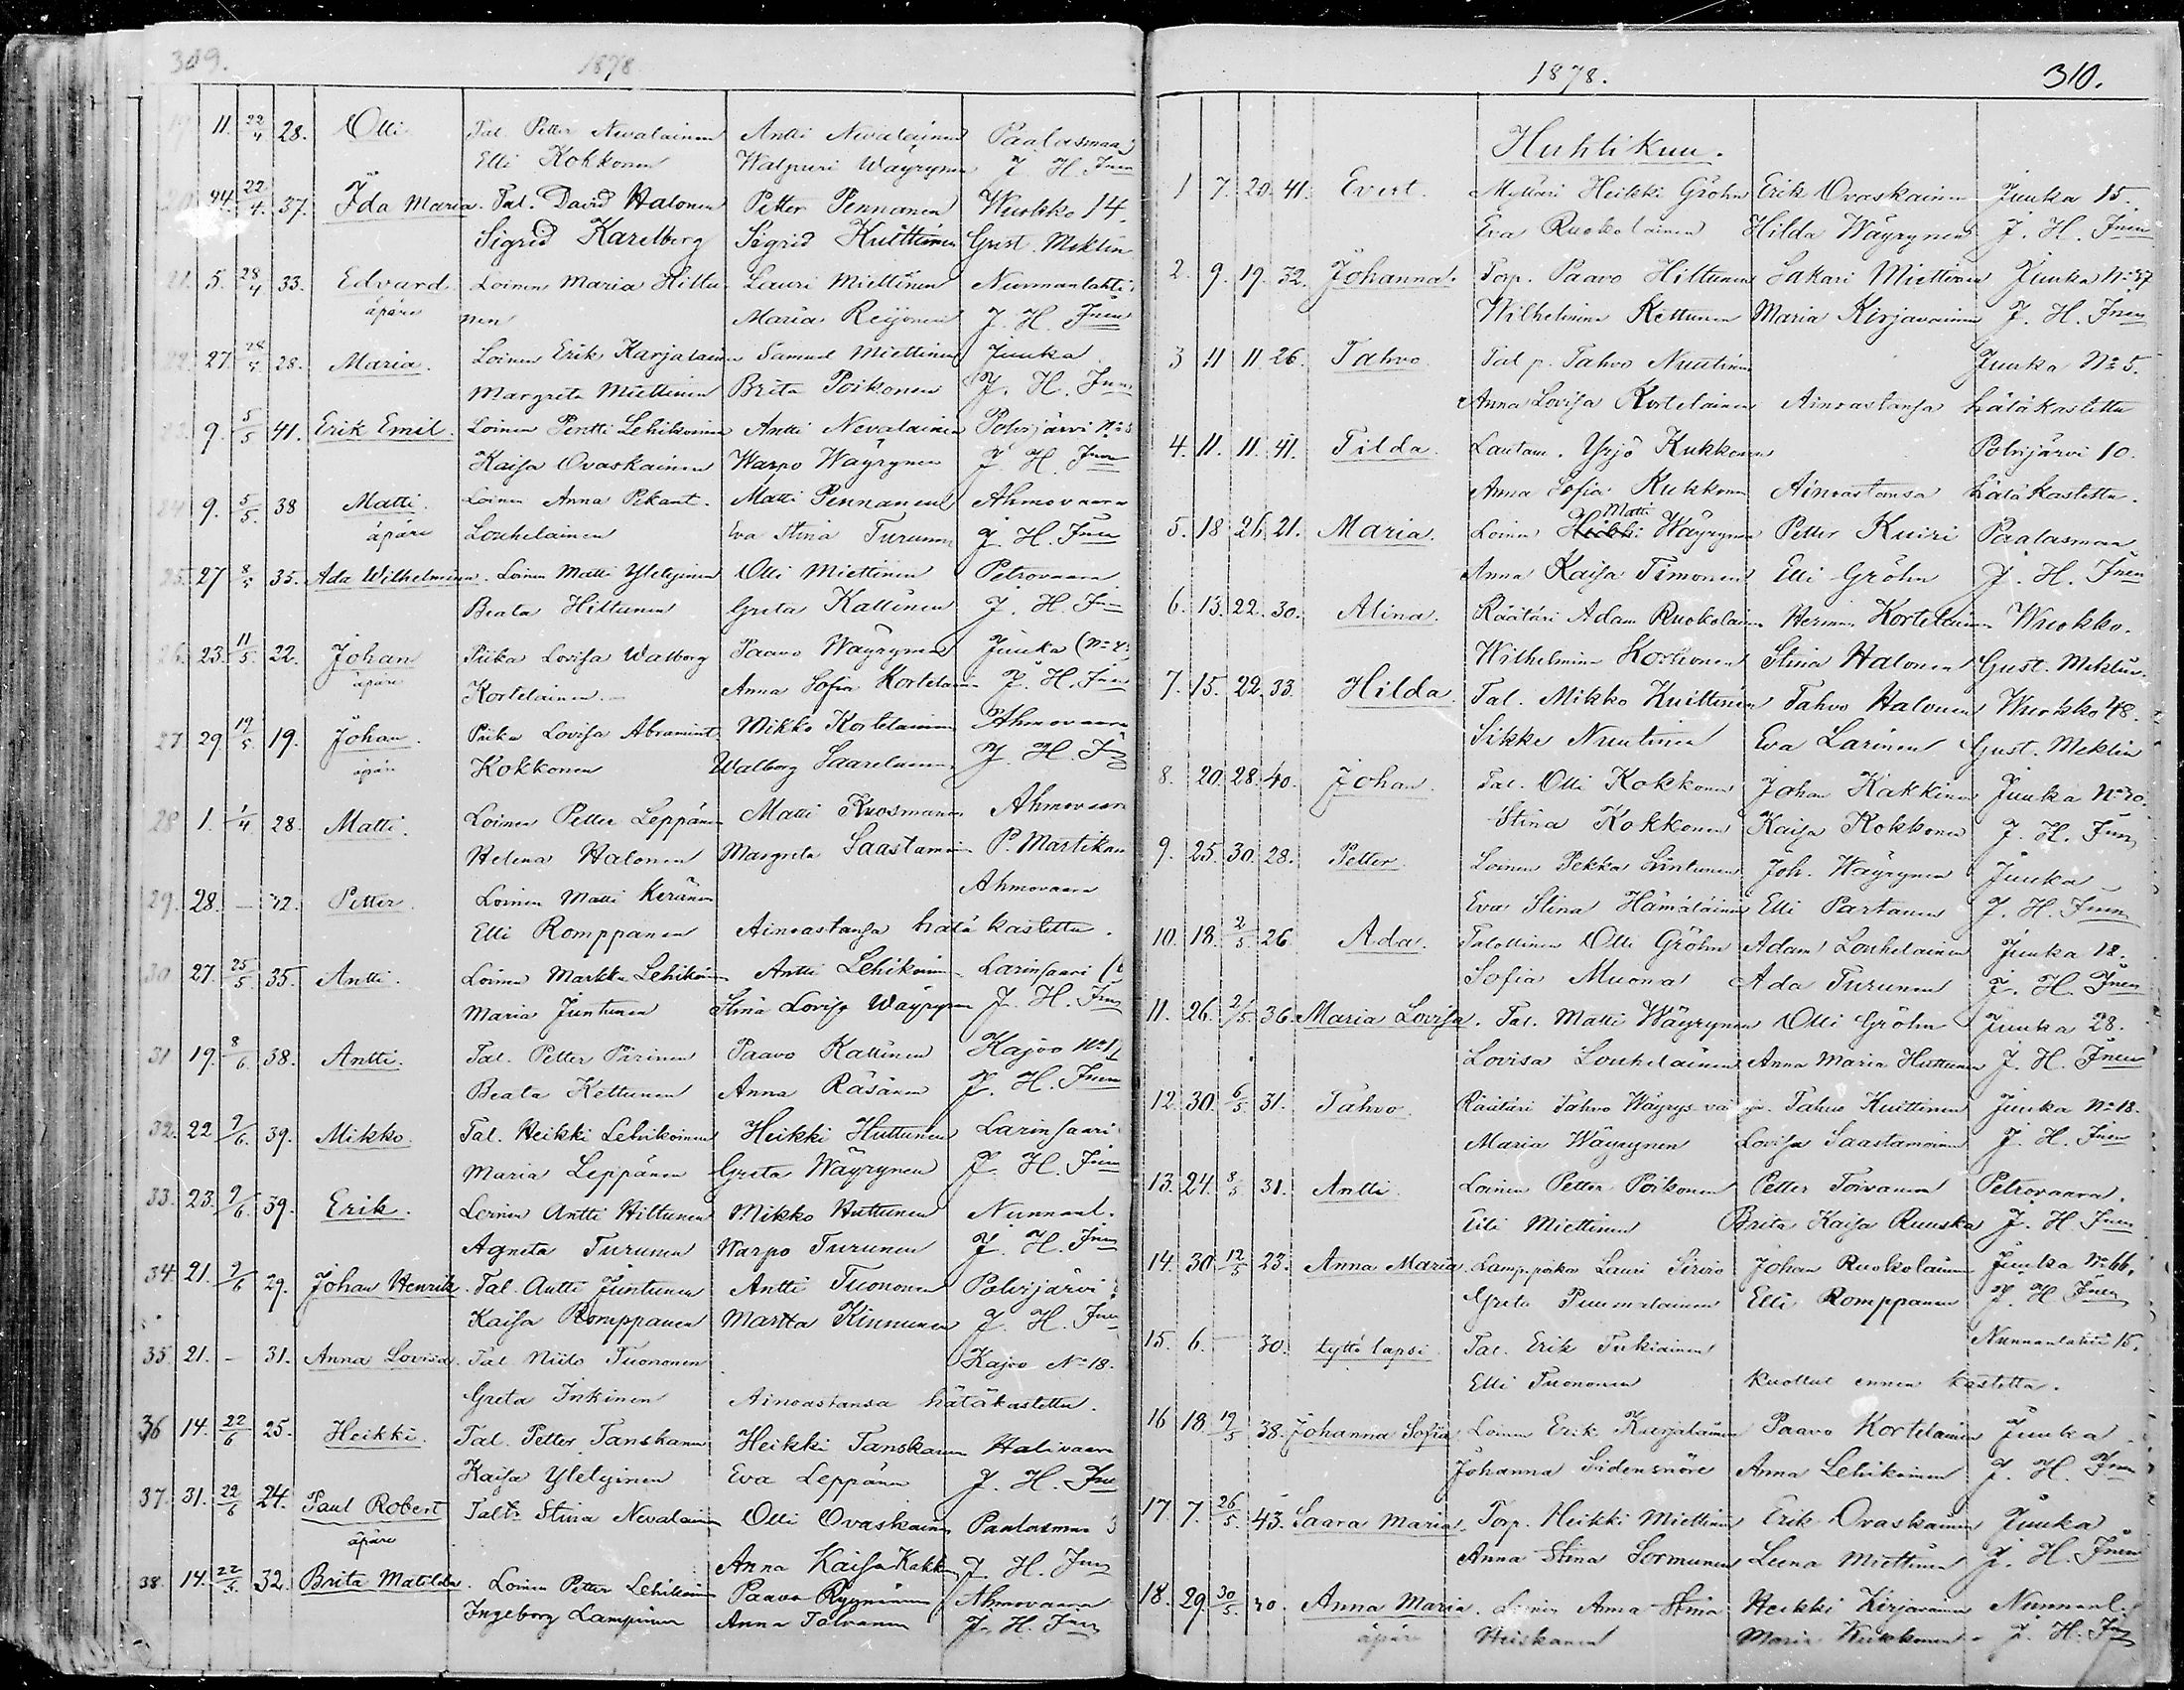 309.
1878
19 11. 22/4 28. Olli Tal. Petter Nevalainen Antti Nevalainen Paalasmaa
Elli Kokkonen Walpuri Wäyrynen J. H. Jnen
20 24. 22/4. 37. Ida Maria. Tal. David Halonen Petter Pennanen Wuokko 14.
Sigrid Karelberg Sigrid Kuittinen Gust. Meklin
21. 5. 28/4 33. Edvard Loinen Maria Hiltu- Lauri Miettinen Nunnanlahti
äpäre nen Maria Reijonen J. H. Jnen
22. 27. 28/4 28. Maria. Loinen Erik Karjalainen Samuel Miettinen Juuka
Margreta Miettinen Brita Poikonen J. H. Jnen
9. 5/5 41. Erik Emil. Loinen Pentti Lehikoinen Antti Nevalainen Polvijärvi
Kaisa Ovaskainen Warpo Wäyrynen J. H. Jnen
24 9. 5/5. 38 Matti. Loinen Anna Pekant. Matti Pennanen Ahmovaara
äpäre Louhelainen Eva Stina Turunen J. H. Jnen
25. 27 8/5 35. Ada Wilhelmina. Loinen Matti Yletyinen Olli Miettinen Petrovaara
Beata Hiltunen Greta Kattinen J. H. Jnen
26. 23. 11/5 22. Johan Piika Lovisa Walborg Paavo Wäyrynen Juuka
äpäre Kortelainen Anna Sofia Kortelainen J. H. Jnen
27 29 19/5. 19. Johan. Piika Lovisa Abramint. Mikko Kortelainen Ahmovaara
äpäre Kokkonen Walborg Saarelainen J. H. Jnen
28 1. 1/4 28. Matti. Loinen Petter Leppänen Matti Kuosmanen Ahmovaara
Helena Halonen Margreta Saastamoinen P. Martikainen
29. 28. — 32. Petter. Loinen Matti Keränen Ahmovaara
Elli Romppanen Ainoastansa hätäkastettu.
30 27. 25/5. 35. Antti. Loinen Markku Lehikoinen Antti Lehikoinen Larinsaari
Maria Juntunen Stina Lovisa Wäyrynen J. H. Jnen
31 19. 8/6. 38. Antti. Tal. Petter Piirinen Paavo Kattinen Kajoo
Beata Kettunen Anna Räsänen J. H. Jnen
32. 22 9/6. 39. Mikko. Tal. Heikki Lehikoinen Heikki Huttunen Larinsaari
Maria Leppänen Greta Wäyrynen J. H. Jnen
33. 23. 9/6. 39. Erik. Loinen Antti Hiltunen Mikko Huttunen Nunnanl.
Agneta Turunen Warpo Turunen J. H. Jnen
34. 21. 9/6 29. Johan Henrik. Tal. Antti Juntunen Antti Tuononen Polvijärvi
Kaisa Romppanen Martta Kinnunen J. H. Jnen
35. 21. — 31. Anna Lovisa. Tal. Niilo Tuononen Kajoo No 18.
Greta Inkinen Ainoastansa hätäkastettu.
36 14. 22/6 25. Heikki. Tal. Petter Tanskanen Heikki Tanskanen Halivaara
Kaisa Yletyinen Eva Leppänen J. H. Jnen
37. 31. 22/6 24. Paul Robert Stina Nevalainen Olli Ovaskainen Paalasmaa
äpäre Anna Kaisa J. H. Jnen
38. 14. 22/5. 32. Brita Matilda. Loinen Petter Lehikoinen Paavo Ryynänen Ahmovaara
Ingeborg Lampinen Anna Tolvanen J. H. Jnen
1878.
310.
Huhtikuu.
1 7. 20. 41. Evert. Mylläri Heikki Gröhn Erik Ovaskainen Juuka 15.
Eva Ruokolainen Hilda Wäyrynen J. H. Jnen
2. 9. 19. 32. Johanna. Torp. Paavo Hiltunen Sakari Miettinen Juuka No 37
Wilhelmina Kettunen Maria Kirjavainen J. H. Jnen
3 11 11 26. Tahvo Tal. p. Tahvo Nuutinen Juuka No 5.
Anna Lovisa Kortelainen Ainoastansa hätäkastettu
4. 11. 11. 41. Tilda. Lautam. Yrjö Kukkonen Polvijärvi 10.
Anna Sofia Kukkonen Ainoastansa hätäkastettu.
Matti
5. 18 26. 21. Maria. Loinen Heikki Wäyrynen Petter Kuiri Paalasmaa
Anna Kaisa Timonen Elli Gröhn J. H. Jnen
6. 13. 22. 30. Alina. Räätäri Adam Ruokolainen Herman Kortelainen Wuokko.
Wilhelmina Korhonen Stina Halonen Gust. Meklin.
7. 15. 22. 33. Hilda. Tal. Mikko Kuittinen Tahvo Halonen Wuokko 48.
Sikke Nuutinen Eva Larinen Gust. Meklin
8. 20. 28. 40. Johan. Tal. Olli Kokkonen Johan Kakkinen Juuka No 30.
Stina Kokkonen Kaisa Kokkonen J. H. Jnen
9. 25. 30. 28. Petter. Loinen Pekka Lintunen Joh. Wäyrynen Juuka
Eva Stina Hämäläinen Elli Partanen J. H. Jnen
10. 18. 2/5. 26. Ada. Talollinen Olli Gröhn Adam Louhelainen Juuka 18.
Sofia Muona Ada Turunen J. H. Jnen
11. 26. 2/5. 36. Maria Lovisa. Tal. Matti Wäyrynen Olli Gröhn Juuka 28.
Lovisa Louhelainen Anna Maria Huttunen J. H. Jnen
12. 30. 6/5. 31. Tahvo. Räätäri Tahvo Wäyrys Tahvo Kuittinen Juuka No 18.
Maria Wäyrynen Lovisa Saastamoinen J. H. Jnen
13. 24. 8/5 31. Antti. Loinen Petter Poikonen Petter Toivanen Petrovaara.
Miettinen Brita Kaisa Ruuska J. H. Jnen
14. 30. 12/5 23. Anna Maria. Lamp.poika Lauri Sirviö Johan Ruokolainen Juuka No 66.
Greta Puumalainen Elli Romppanen J. H. Jnen
15. 6. — 30. tyttö lapsi Tal. Erik Tukiainen Nunnanlahti 15.
Elli Tuononen kuollut ennen kastetta.
16 18. 19/5 38. Johanna Sofia. Loinen Erik Karjalainen Paavo Kortelainen Juuka
Johanna Sidensnöre Anna Lehikoinen J. H. Jnen
17. 7. 26/5. 43. Saara Maria. Torp. Heikki Miettinen Erik Ovaskainen Juuka
Anna Stina Sormunen Leena Miettinen J. H. Jnen
18. 29. 30/5. 40. Anna Maria. Loinen Anna Stina Heikki Kirjavainen Nunnanl.
äpäre Heiskanen Maria Kukkonen J. H. Jnen